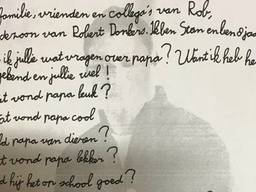 familie, vrienden en collega's van Rob,
van Robert Donkers. Ik ben Stan en ben 8 jaar
ik jullie wat vragen over papa? Want ik heb he
en jullie wel!
vond papa leuk?
vond papa cool
papa van dieren?
vond papa lekker?
hij het op school goed?